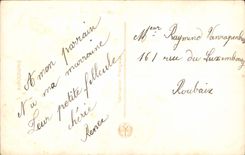 A mon parrain
N a ma marraine
Leur petite filleule
chérie
Renée
Mr Raymond
161 rue du Luxembourg
Roubaix